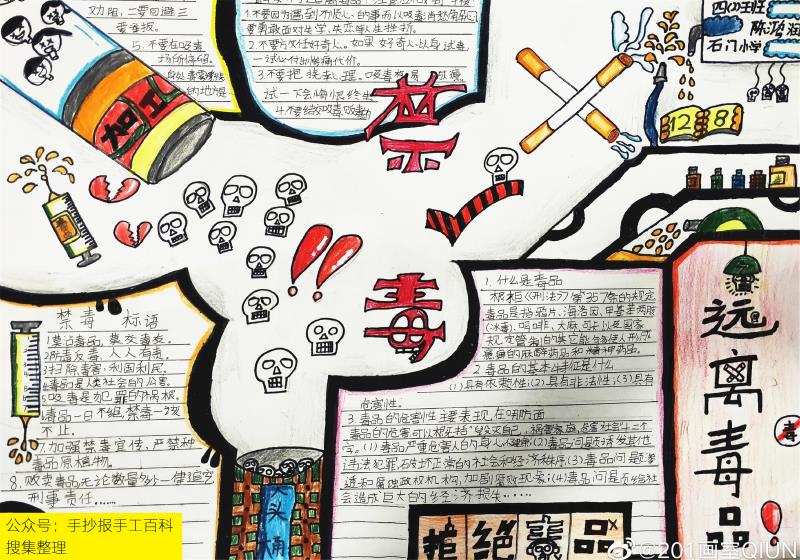 劝阻,二要回避三
要举报。
5.不要在吸毒
场所停留。
的地方
1.不要因为遇到不顺心的事而以吸毒消愁解闷
要勇敢面对失学、失恋等人生挫折。
以身试毒
一试必付出惨痛代价。
试一下会悔恨终生
4.不要结交吸毒
四(2)班
石门小学
128
加工
禁
毒
禁毒标语
1莫沾毒品,莫交毒友。
人人有责。
3扫除毒害,利国利民。
4毒品是人类社会的公害。
5吸毒是犯罪的祸根。
6毒品一日不绝,禁毒一刻
不止。
7.加强禁毒宣传,严禁种
毒品原植物。
8.贩卖毒品无论数量多少一律追究
刑事责任……
大头
桶
1.什么是毒品
根据《刑法》第357条的规定
毒品是指鸦片、海洛因、甲基苯丙胺
(冰毒)、吗啡、大麻、可卡以及国家
规定管制的其它能够使人形成
瘾癖的麻醉药品和精神药品。
2.毒品的基本特征是什么
(1)具有依赖性;(2)具有非法性;(3)具有
危害性。
3.毒品的危害性主要表现在哪方面
毒品的危害可以概括“毁灭自己,祸害家庭,危害社会”十二个
字。(1)毒品严重危害人的身心健康;(2)毒品问题诱发其他
违法犯罪,破坏正常的社会和经济秩序;(3)毒品问题渗
透和腐蚀政权机构,加剧腐败现象;(4)毒品问题给社
会造成巨大的经济损失……
拒绝毒品
远
离
毒
品
毒
公众号:手抄报手工百科
搜集整理
@201画室QIUN